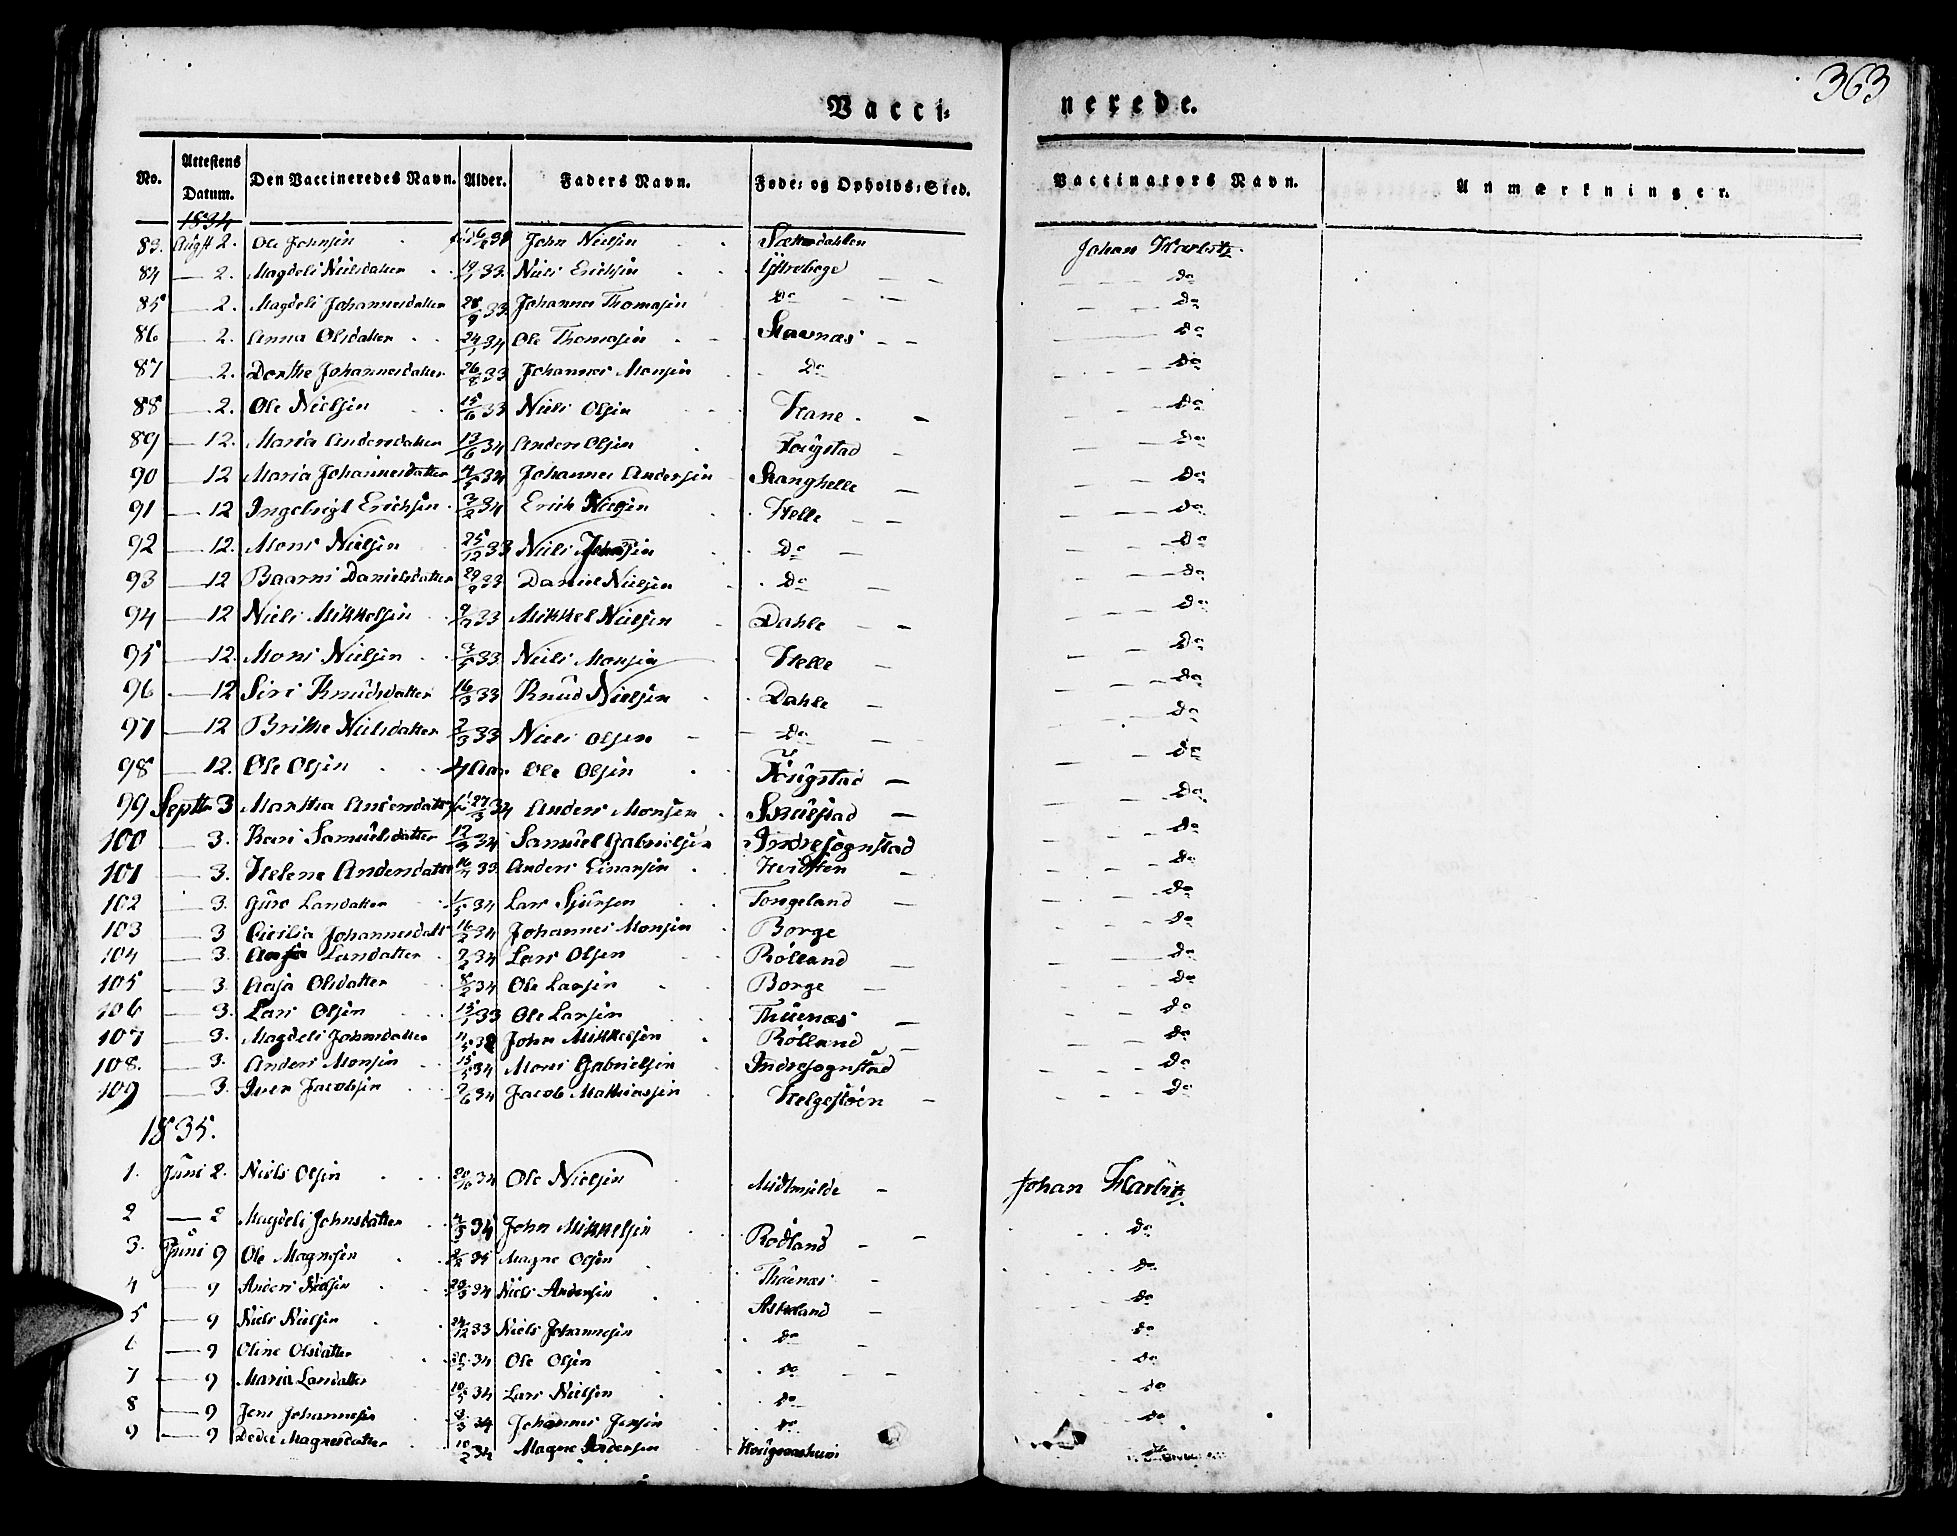 363
Vacci- nerede.
No. Attestens Datum. Den Vaccineredes Navn. Alder. Faders Navn. Føde- og Opholds-Sted. Vaccinators Navn. Anmærkninger.
1834
83. Augst 2. Ole Johnsen John Nielsen
84 — 2. Magdeli Nielsdatter 33 Niels Erichsen do
85 — 2. Magdeli Johannesdatter 28/9 33 Johannes Thomasen do do
86 — 2. Anna Olsdatter 34 Ole Thomasen Stavnæs do
87 — 2. Dorthe Johannesdatter 26/8 33 Johannes Monsen Do do
88 — 2. Ole Nielsen 15/6 33 Niels Olsen Hane do
89 — 12. Maria Andersdatter 34 Anders Olsen Fougstad do
90 — 12 Maria Johannesdatter 34 Johannes Andersen Stanghelle do
91 — 12 Ingebrigt Erichsen 3/2 34 Erich Nielsen Helle do
92 — 12. Mons Nielsen 25/12 33 Niels Johnsen do do
93 — 12 Baarni Danielsdatter 33 Daniel Nielsen do do
94 — 12 Niels Mikkelsen 33 Mikkel Nielsen Dahle do
95 — 12. Mons Nielsen 33 Niels Monsen Helle do
96 — 12 Siri Knudsdatter 16/3 33 Knud Nielsen Dahle do
97 — 12 Brithe Nielsdatter 2/3 33 Niels Olsen do do
98 — 12. Ole Olsen 4 Aar Ole Olsen Fougstad do
99 Septbr 3 Martha Andersdatter 34 Anders Monsen do
100 — 3. Kari Samuelsdatter 34 Samuel Gabrielsen Indresognstad do
101 — 3. Helene Andersdatter 33 Anders Einarsen do
102 — 3. Guro Larsdatter 1/5 34 Lars Sjursen Tongeland do
103 — 3 Cicilia Johannesdatt 16/2 34 Johannes Monsen Borge do
104 — 3. Larsdatter 34 Lars Olsen Rølland do
105 — 3. Aasa Olsdatter 8/2 34 Ole Larsen Borge do
106 — 3. Lars Olsen 33 Ole Larsen Thuenæs do
107 — 3. Magdeli Johnsdatter John Mikkelsen Rølland do
108. — 3. Anders Monsen 34 Mons Gabrielsen Indresognstad do
109 — 3. Iver Jacobsen 34 Jacob Mathiassen Helgesøen do
1835.
1. Juni 2. Niels Olsen 34 Ole Nielsen Midtmjelde Johan
2 — 2 Magdeli Johnsdatter 34 John Mikkelsen Rødland do
3. Juni 9 Ole Magnesen 34 Magne Olsen Thuenæs do
4 — 9 Anders Nielsen 34 Niels Andersen Askeland do
5 — 9 Niels Nielsen 24/12 33 Niels Johannesen do do
6 — 9 Oline Olsdatter 34 Ole Olsen do do
7 — 9 Maria Larsdatter 10/5 34 Lars Nielsen do do
8 — 9 Jens Johannesen 34 Johannes Jensen do do
9 — 9 Magnesdatter 10/2 34 Magne Andersen